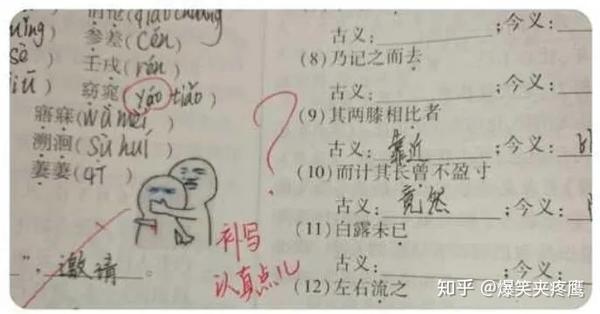 参差(cēn)
壬戌(rén)
窈窕(yáo tiǎo)
寤寐(wù mèi)
溯洄(sù huí)
萋萋(qī)
”,邀请。
补写
认真点儿
古义:;今义:
(8)乃记之而去
古义:;今义:
(9)其两膝相比者
古义:靠近;今义:
(10)而计其长曾不盈寸
古义:竟然;今义:
(11)白露未已
古义:;今义:
(12)左右流之
知乎 @爆笑夹疼鹰